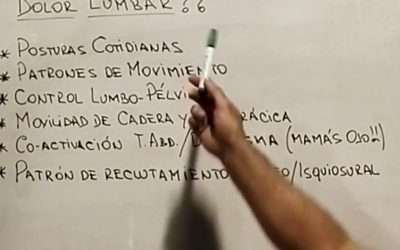 DOLOR LUMBAR
* POSTURAS COTIDIANAS
* PATRONES DE MOVIMIENTO
* CONTROL LUMBO-PÉLVI
* MOVILIDAD DE CADERA Y RÁCICA
* CO-ACTIVACIÓN T. ABD./ (MAMÁS OJO!!)
* PATRÓN DE RECLUTAMIENTO /ISQUIOSURAL